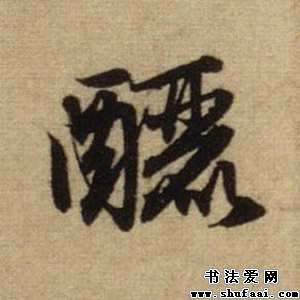 釃
书法爱网
www.shufaai.com